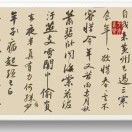 自我來黃州已過三寒
食年年欲惜春春去不
容惜今年又苦雨兩月秋
蕭瑟卧聞海棠花泥
汙燕支雪闇中偷負
去夜半真有力何殊
少年子病起頭已白